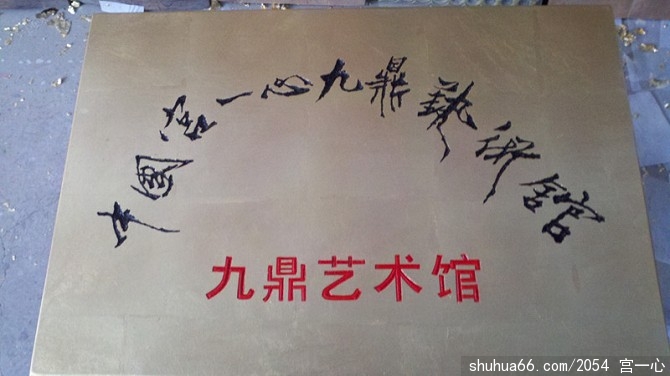 中國宫一心九鼎藝術館
九鼎艺术馆
shuhua66.com/2054 宫一心